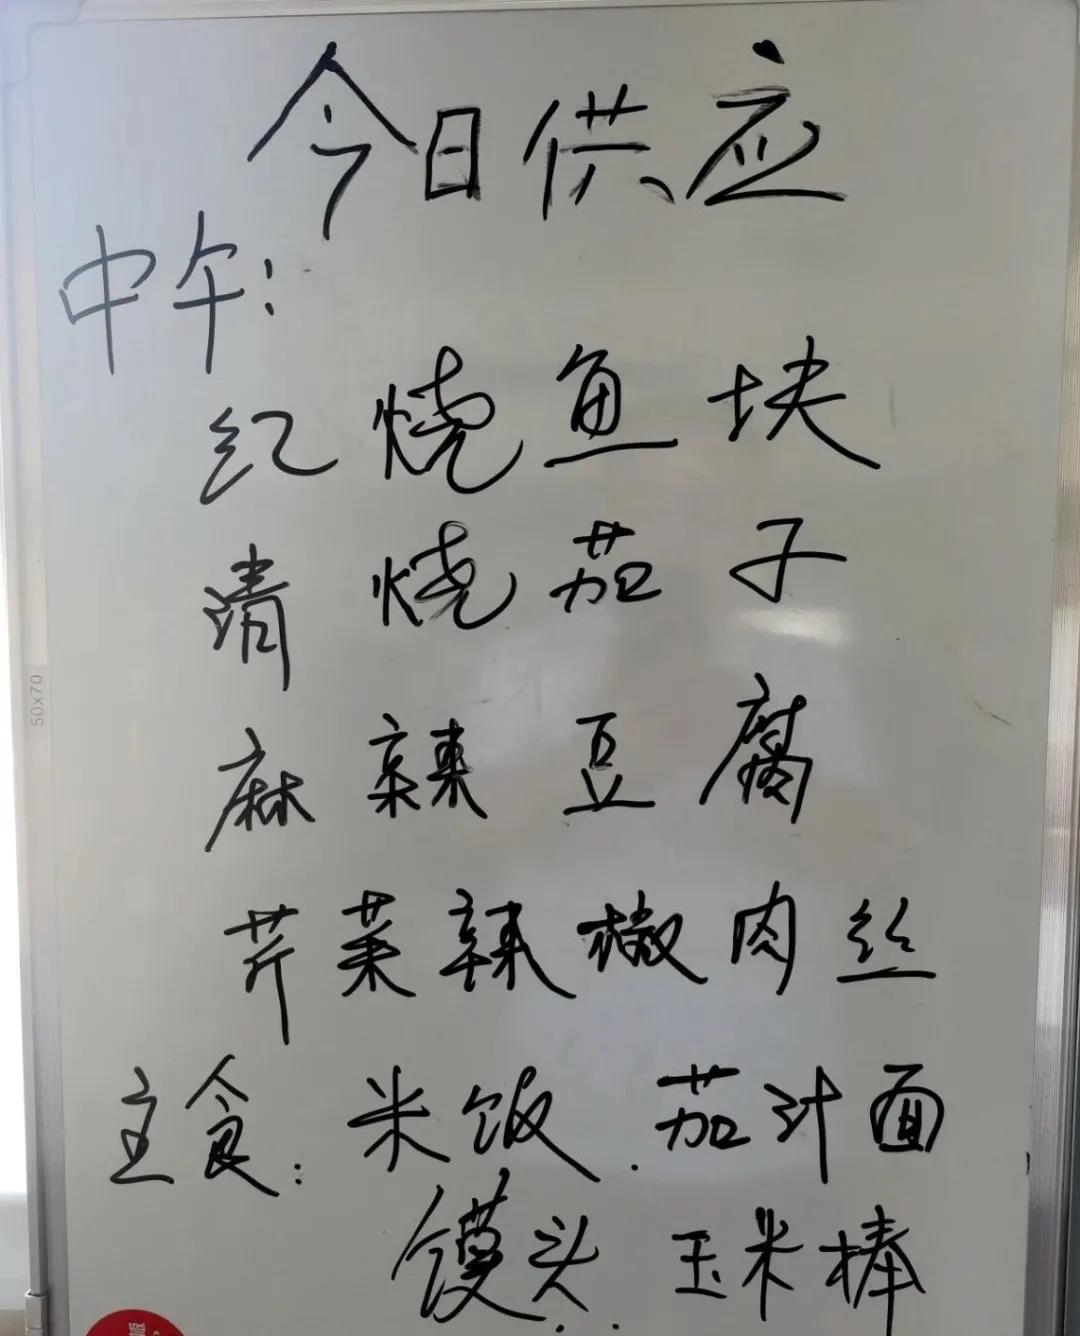 今日供应
中午:
红烧鱼块
清烧茄子
麻辣豆腐
芹菜辣椒肉丝
主食: 米饭. 茄汁面
馒头. 玉米棒
50x70